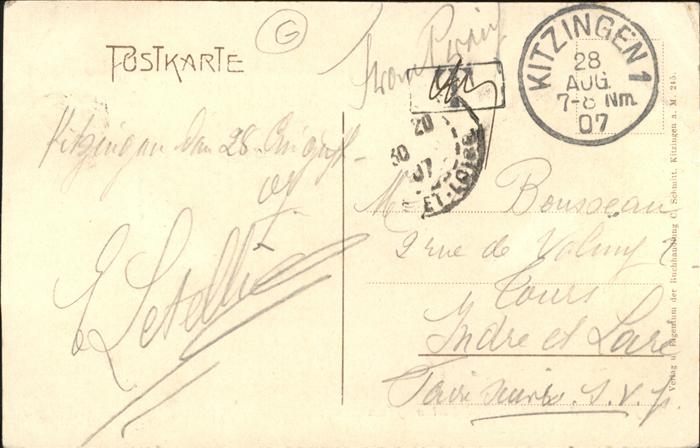 POSTKARTE
G
KITZINGEN 1
28
AUG.
7-8 Nm.
07
20
30
07
ET-LOIRE
Kitzingen den 28 August
07
E Letellier
M Bousseau
2 rue de Valmy 2
Tours
Indre et Loire
Faire suivre S. V. p.
Verlag u. Eigentum der Buchhandlung C. Schmitt, Kitzingen a. M. 245.